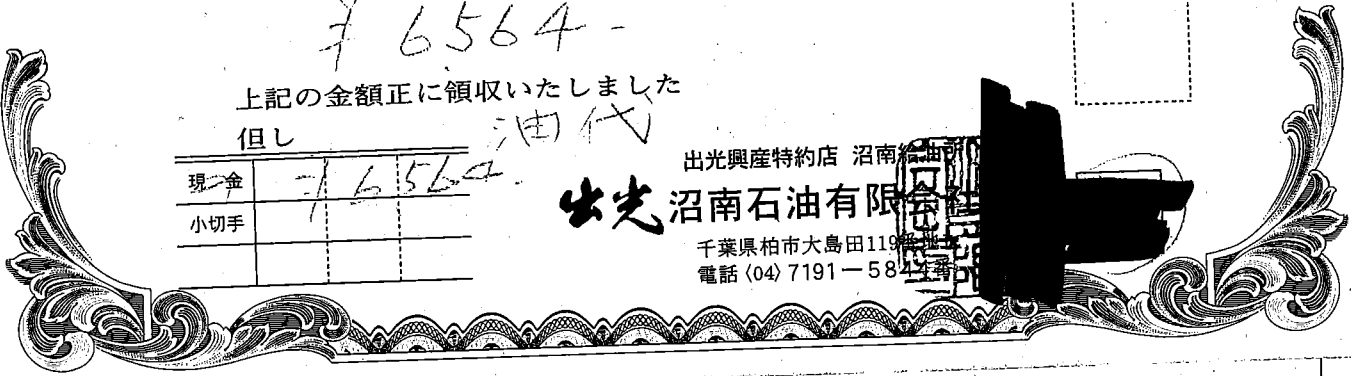 ¥6564-
上記の金額正に領収いたしました
但し 油代
現金 ¥6564.
小切手
出光興産特約店 沼南給油所
出光 沼南石油有限会社
千葉県柏市大島田119番地
電話〈04〉7191－5844番